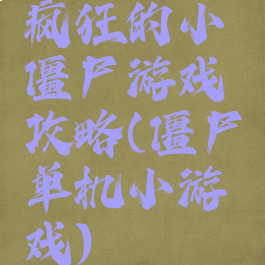 疯狂的小
僵尸游戏
攻略(僵尸
单机小游
戏)